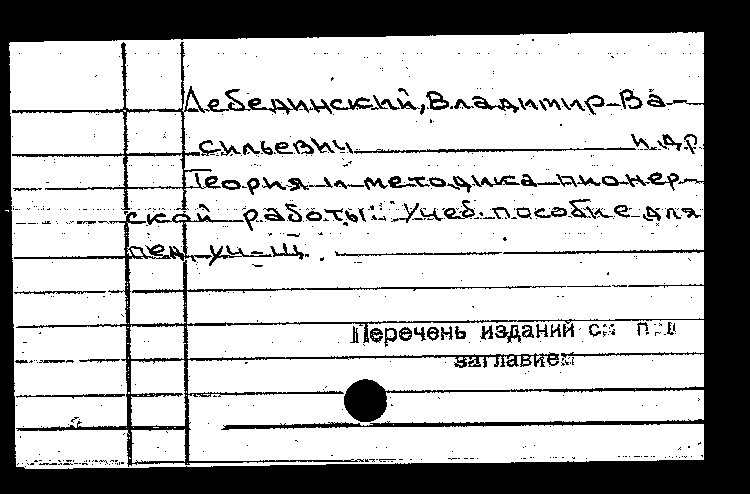 Лебединский, Владимир Ва-
сильевич и др
Теория и методика пионер-
ской работы: Учеб. пособие для
пед. уч-щ.
Перечень изданий см под
заглавием